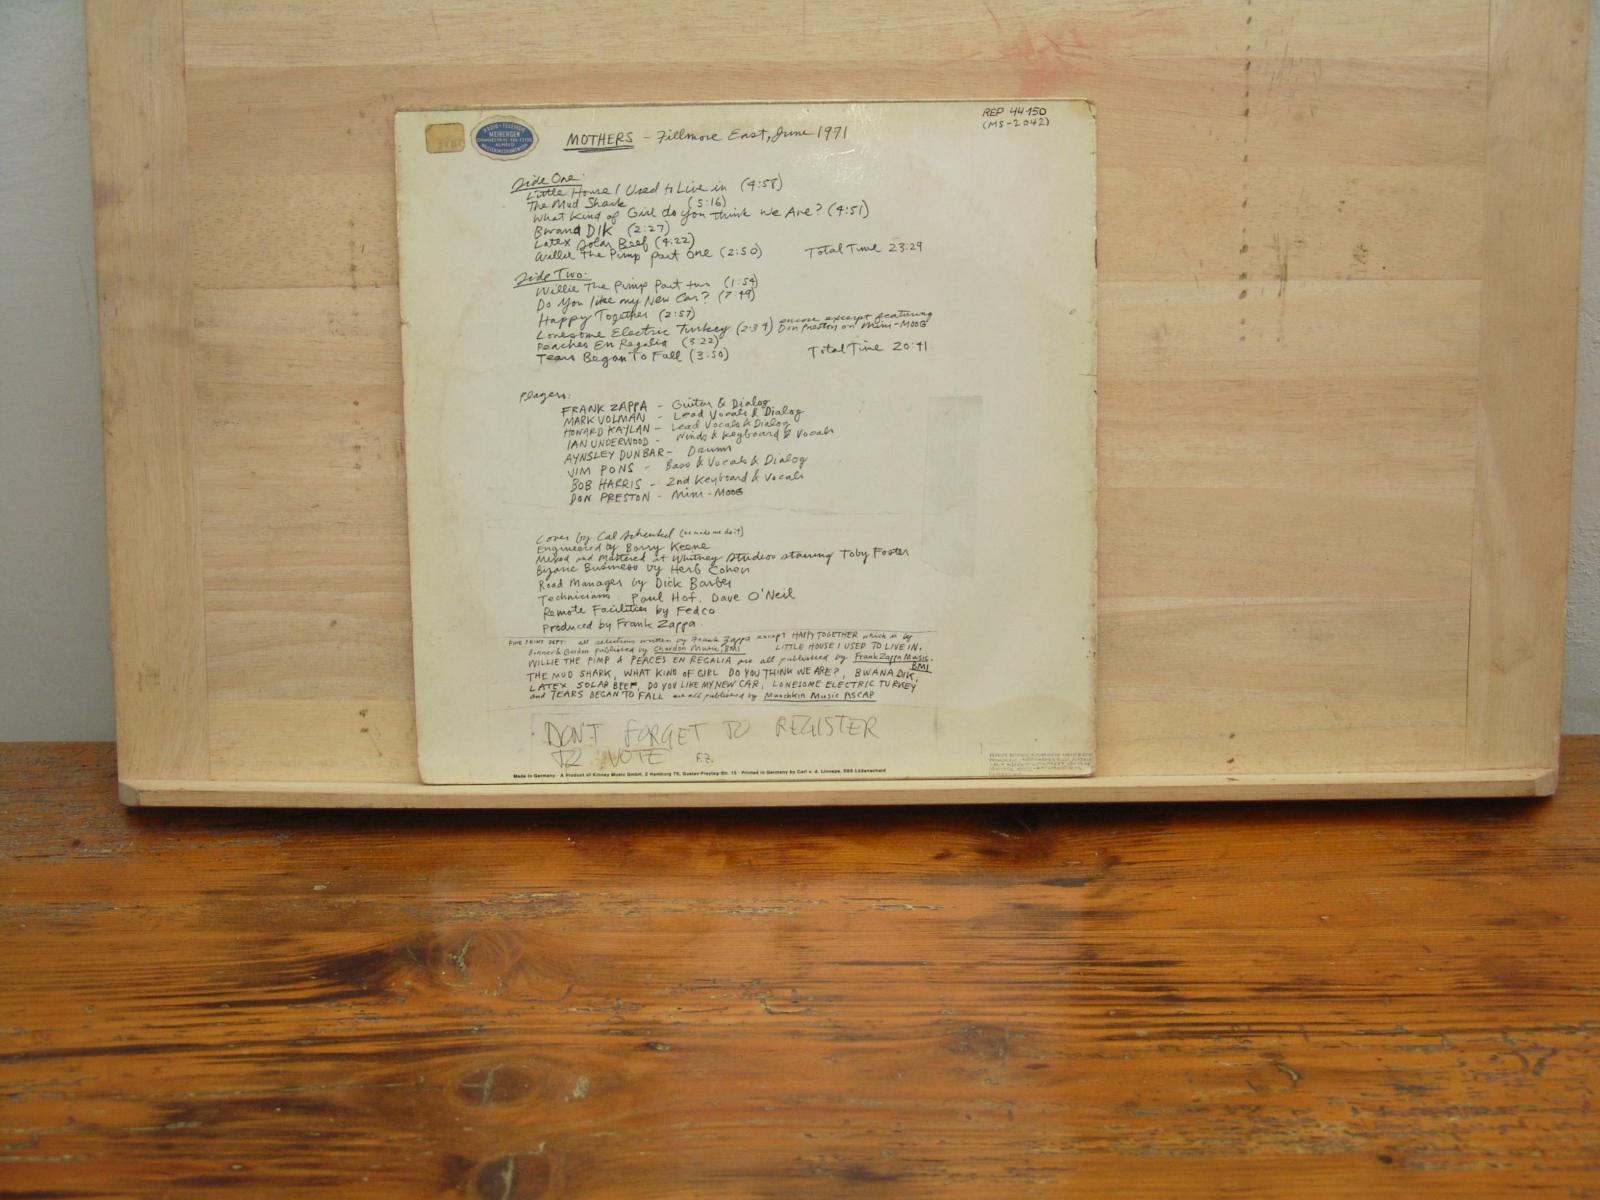 REP 44 150
(MS-2042)
RADIO-TELEVISIE
MEIBERGEN
ALMELO
MOTHERS - Fillmore East, June 1971
Side One:
Little House I Used to Live in (4:58)
The Mud Shark (5:16)
What Kind of Girl do you think We Are? (4:51)
Bwana DIK (2:27)
Latex Solar Beef (4:22)
Willie The Pimp part one (2:50) Total Time 23:29
Side Two:
Willie The Pimp Part two (1:54)
Do You like my New Car? (7:49)
Happy Together (2:57)
Lonesome Electric Turkey (2:34) encore excerpt featuring
Don Preston on Mini-MOOG
Peaches En Regalia (3:22)
Tears Began To Fall (3:50) Total Time 20:41
Players:
FRANK ZAPPA - Guitar & Dialog
MARK VOLMAN - Lead Vocals & Dialog
HOWARD KAYLAN - Lead Vocals & Dialog
IAN UNDERWOOD - Winds & Keyboard & Vocals
AYNSLEY DUNBAR - Drums
JIM PONS - Bass & Vocals & Dialog
BOB HARRIS - 2nd Keyboard & Vocals
DON PRESTON - Mini-MOOG
Cover by Cal Schenkel (he made me do it)
Engineered by Barry Keene
Mixed and Mastered at Whitney Studios starring Toby Foster
Bizarre Business by Herb Cohen
Road Manager by Dick Barber
Technicians: Paul Hof, Dave O'Neil
Remote Facilities by Fedco
Produced by Frank Zappa.
FINE PRINT DEPT: all selections written by Frank Zappa except HAPPY TOGETHER which is by
Bonner & Gordon published by Chardon Music, BMI LITTLE HOUSE I USED TO LIVE IN,
WILLIE THE PIMP & PEACES EN REGALIA are all published by Frank Zappa Music,
BMI
THE MUD SHARK, WHAT KIND OF GIRL DO YOU THINK WE ARE?, BWANA DIK,
LATEX SOLAR BEEF, DO YOU LIKE MY NEW CAR, LONESOME ELECTRIC TURKEY
and TEARS BEGAN TO FALL are all published by Munchkin Music ASCAP
DON'T FORGET TO REGISTER
TO VOTE F.Z.
Made in Germany · A Product of Kinney Music GmbH, 2 Hamburg 76, Gustav-Freytag-Str. 13 · Printed in Germany by Carl v. d. Linnepe, 588 Lüdenscheid